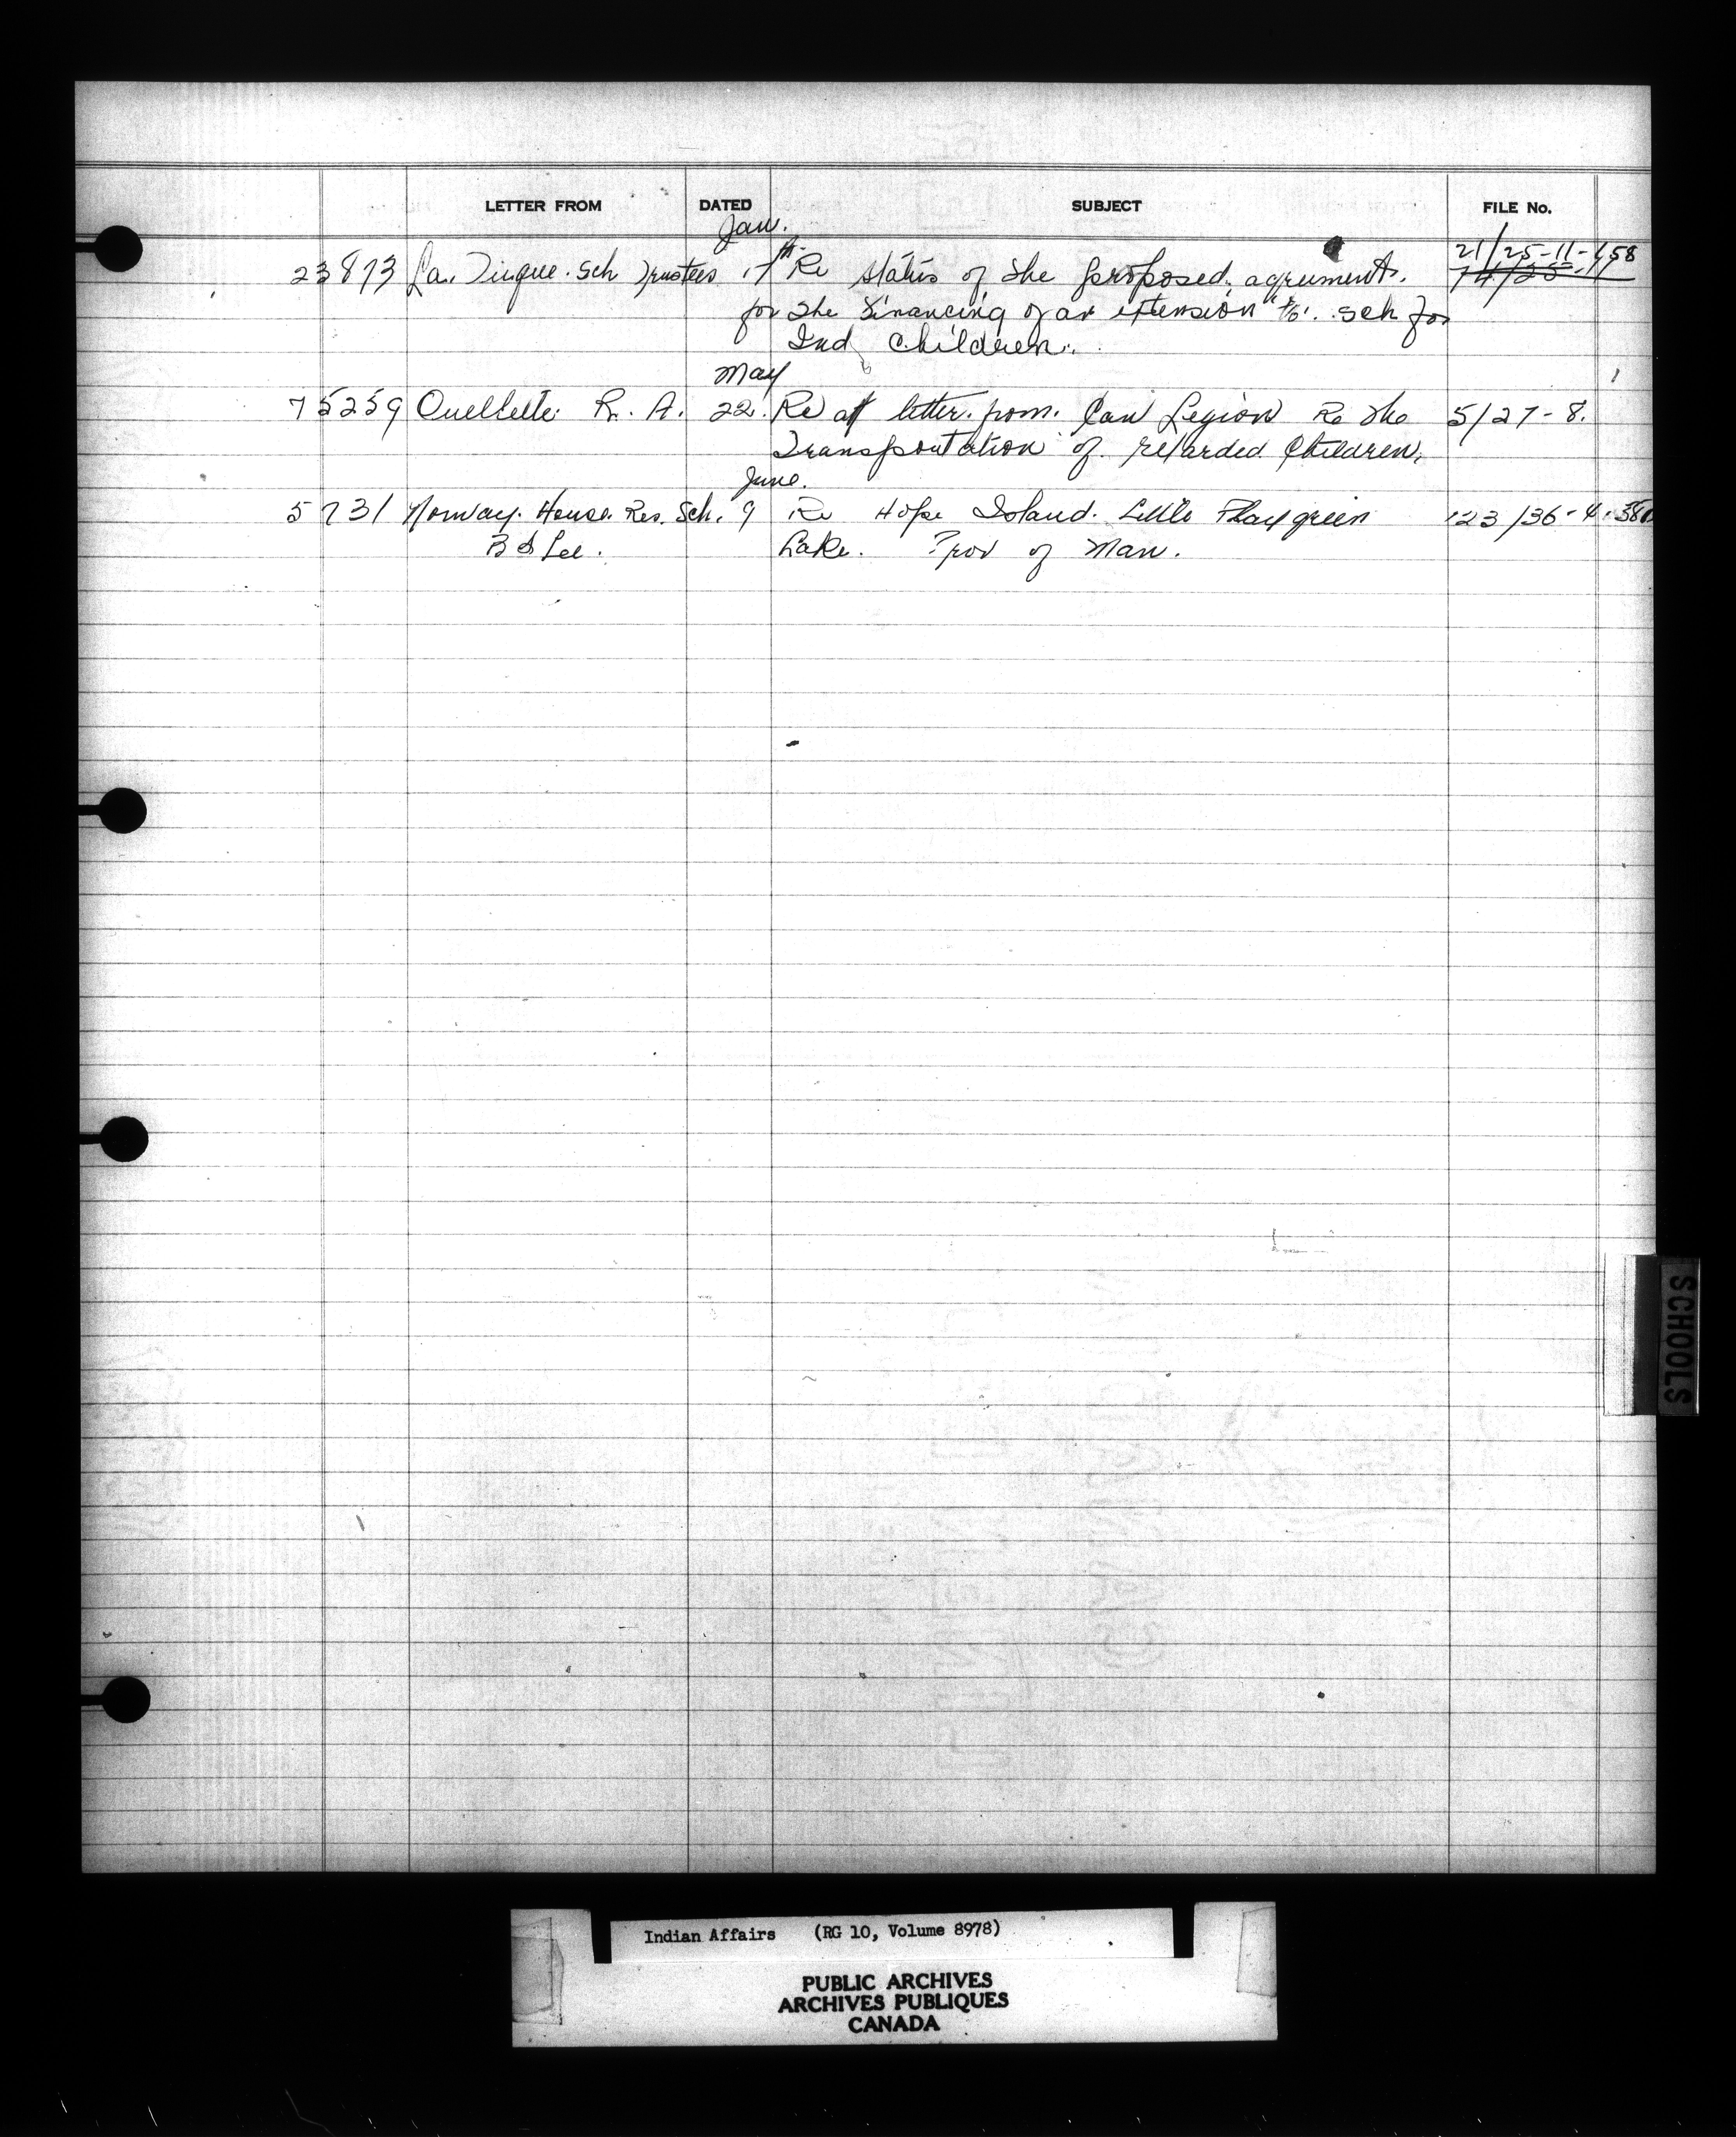 LETTER FROM DATED SUBJECT FILE No.
Jan.
21/25-11-1,58
23873 La. Tuque. Sch Trustees 17 Re status of the proposed agreement. 74/25-1
for the financing of an extension to. sch for
Ind Children.
May
75259 Ouellette R. A. 22. Re letter from. Can Legion Re the 5/27-8.
Transportation of retarded Children.
June.
5731 Norway. House. Res. Sch. 9 Re Hope Island. Little Playgreen 123/36-4.
B S Lee. Lake. Prov of Man.
SCHOOLS
Indian Affairs (RG 10, Volume 8978)
PUBLIC ARCHIVES
ARCHIVES PUBLIQUES
CANADA